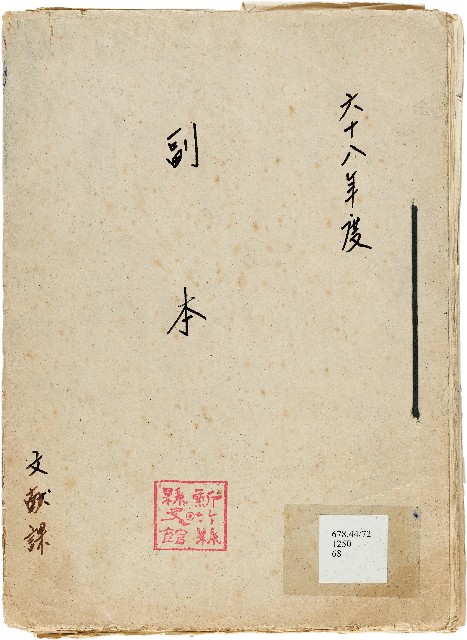 六十八年度
副本
文献課
新竹縣
縣史館
678.44/72
1250
68